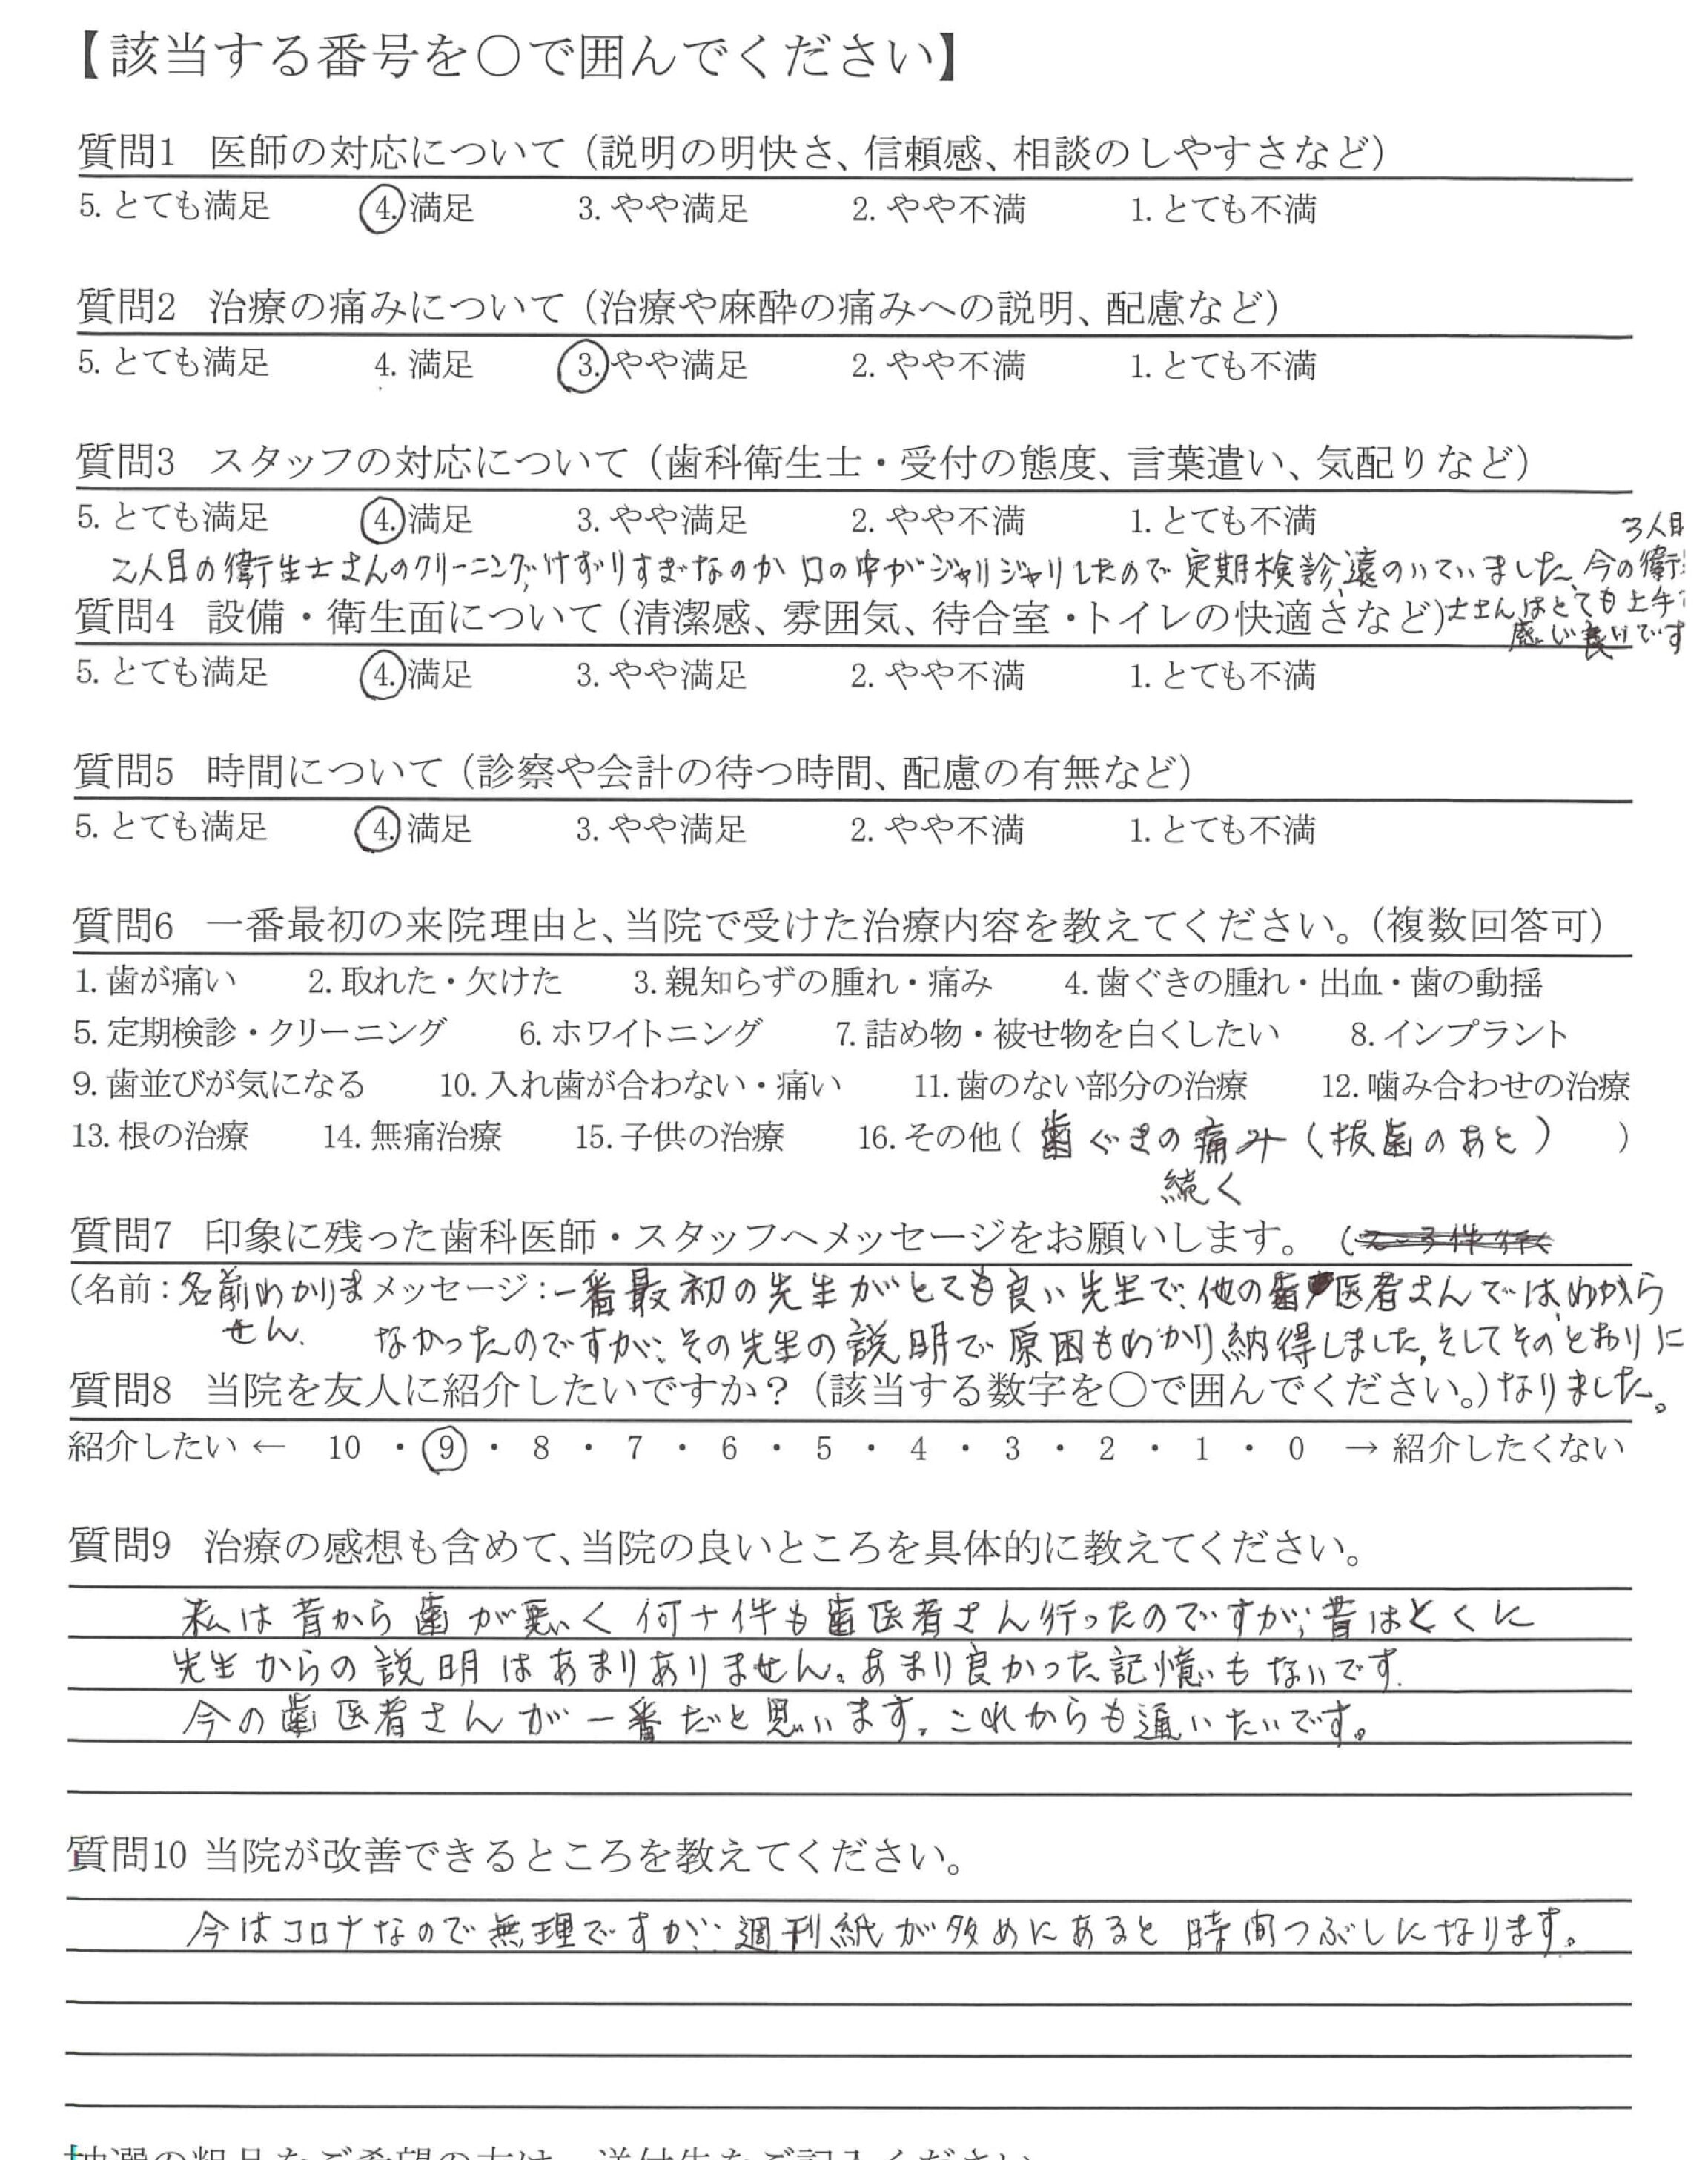 【該当する番号を〇で囲んでください】
質問1 医師の対応について（説明の明快さ、信頼感、相談のしやすさなど）
5. とても満足 4. 満足 3. やや満足 2. やや不満 1. とても不満
質問2 治療の痛みについて（治療や麻酔の痛みへの説明、配慮など）
5. とても満足 4. 満足 3. やや満足 2. やや不満 1. とても不満
質問3 スタッフの対応について（歯科衛生士・受付の態度、言葉遣い、気配りなど）
5. とても満足 4. 満足 3. やや満足 2. やや不満 1. とても不満
3人目
二人目の衛生士さんのクリーニング、けずりすぎなのか 口の中がジャリジャリしたので 定期検診、遠のいていました、今の衛生
質問4 設備・衛生面について（清潔感、雰囲気、待合室・トイレの快適さなど）士さんはとても上手で
感じ良いです
5. とても満足 4. 満足 3. やや満足 2. やや不満 1. とても不満
質問5 時間について（診察や会計の待つ時間、配慮の有無など）
5. とても満足 4. 満足 3. やや満足 2. やや不満 1. とても不満
質問6 一番最初の来院理由と、当院で受けた治療内容を教えてください。（複数回答可）
1. 歯が痛い 2. 取れた・欠けた 3. 親知らずの腫れ・痛み 4. 歯ぐきの腫れ・出血・歯の動揺
5. 定期検診・クリーニング 6. ホワイトニング 7. 詰め物・被せ物を白くしたい 8. インプラント
9. 歯並びが気になる 10. 入れ歯が合わない・痛い 11. 歯のない部分の治療 12. 噛み合わせの治療
13. 根の治療 14. 無痛治療 15. 子供の治療 16. その他（ 歯ぐきの痛み（抜歯のあと） ）
続く
質問7 印象に残った歯科医師・スタッフへメッセージをお願いします。
（名前：名前わかりま メッセージ：一番最初の先生がとても良い先生で、他の歯医者さんでは、わから
せん. なかったのですが、その先生の説明で原因もわかり納得しました、そしてその、とおりに
質問8 当院を友人に紹介したいですか？（該当する数字を〇で囲んでください。）なりました。
紹介したい ← 10 ・ 9 ・ 8 ・ 7 ・ 6 ・ 5 ・ 4 ・ 3 ・ 2 ・ 1 ・ 0 → 紹介したくない
質問9 治療の感想も含めて、当院の良いところを具体的に教えてください。
私は昔から歯が悪く何十件も歯医者さん行ったのですが、昔はとくに
先生からの説明はあまりありません。あまり良かった記憶もないです.
今の歯医者さんが一番だと思います。これからも通いたいです。
質問10 当院が改善できるところを教えてください。
今はコロナなので無理ですが、週刊紙が多めにあると時間つぶしになります。